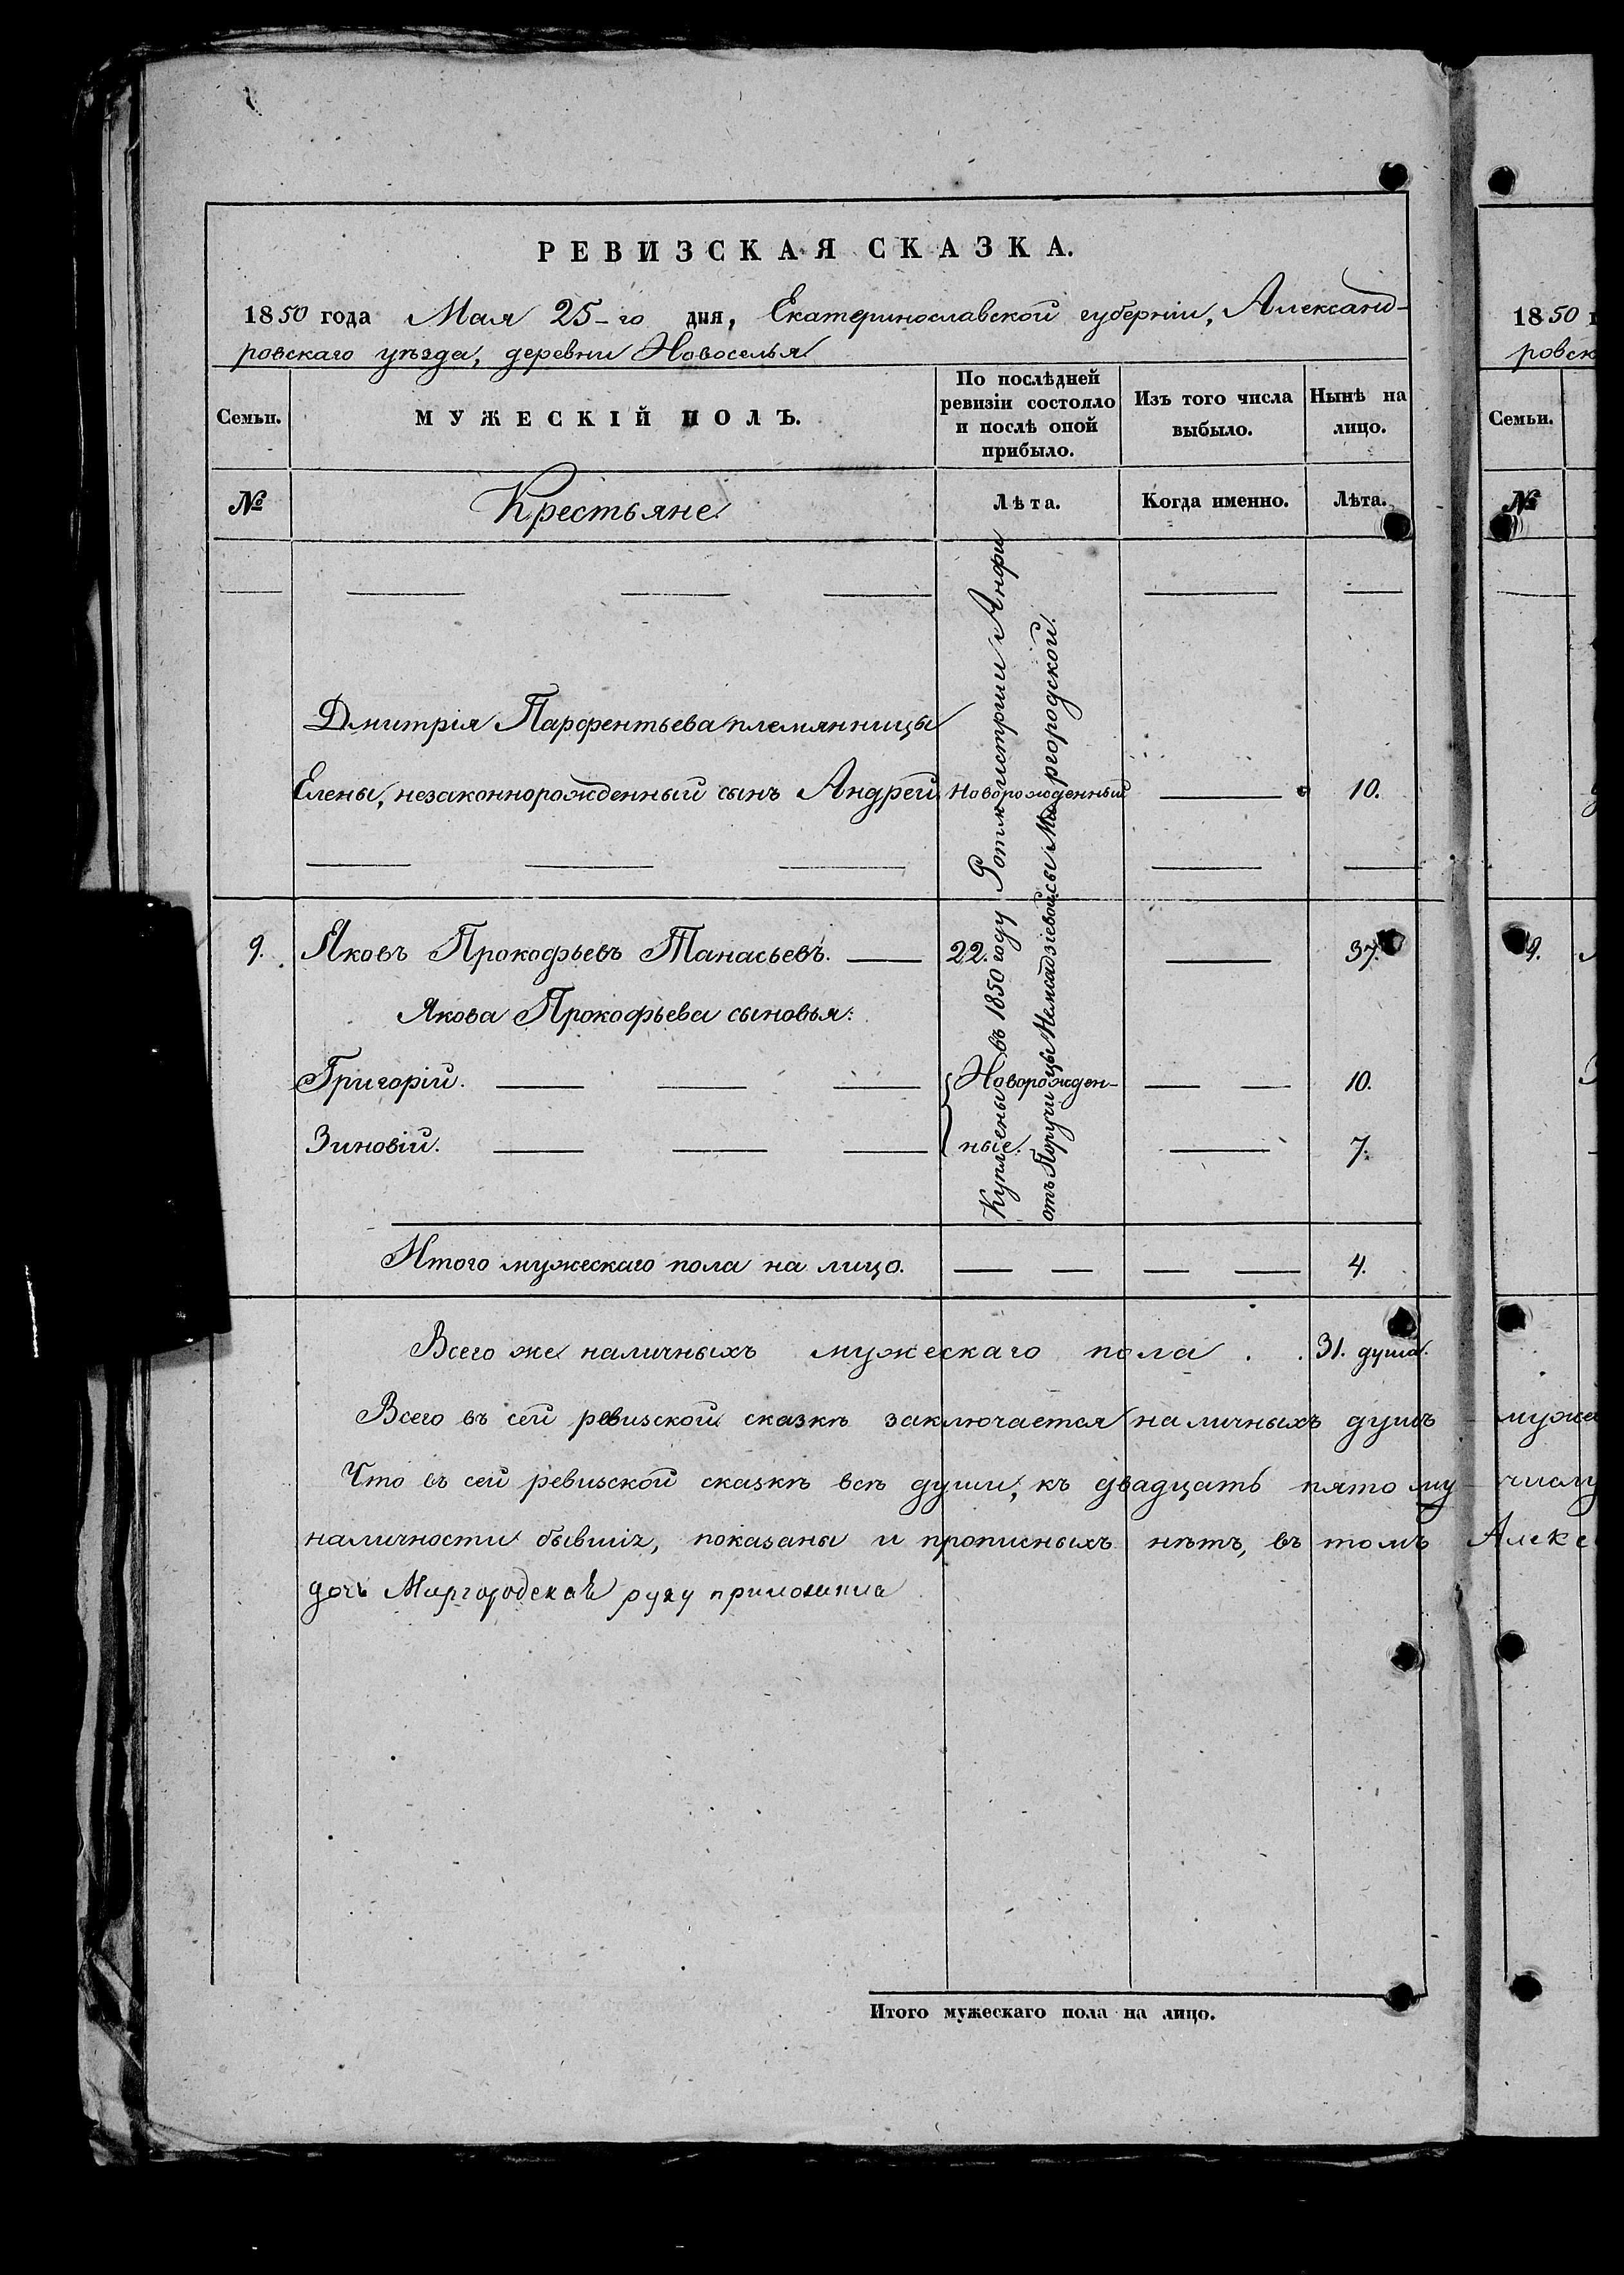 РЕВИЗСКАЯ СКАЗКА.
1850 года Мая 25-го дня, Екатеринославской губернiи, Александ-
ровскаго уѣзда, деревни Новоселья
Семьи.
МУЖЕСКIЙ ПОЛЪ.
По послѣдней ревизiи состояло и послѣ оной прибыло.
Изъ того числа выбыло.
Нынѣ на лицо.
№
Крестьяне
Лѣта.
Когда именно.
Лѣта.
Дмитрiя Парфентьева племянницы
Елены, незаконнорожденный сынъ Андрей Новорожденный 10.
9. Яковъ Прокофьевъ Танасьевъ. 22. 37.
Якова Прокофьева сыновья:
Григорiй. Новорожден- 10.
Зиновiй. ные. 7.
Куплены въ 1850 году Ротмистрши Анфи
отъ Поручицы Миргородской.
Итого мужескаго пола на лицо. 4.
Всего же наличныхъ мужескаго пола . . 31. душа.
Всего въ сей ревизской сказкѣ заключается наличныхъ душъ
Что въ сей ревизской сказкѣ всѣ души, къ двадцать пятому
наличности бывшiя, показаны и прописныхъ нѣтъ, въ томъ
дочь Миргородская руку приложила
Итого мужескаго пола на лицо.
1850
ровск
Семьи.
№
9.
муже
числу
Алекс